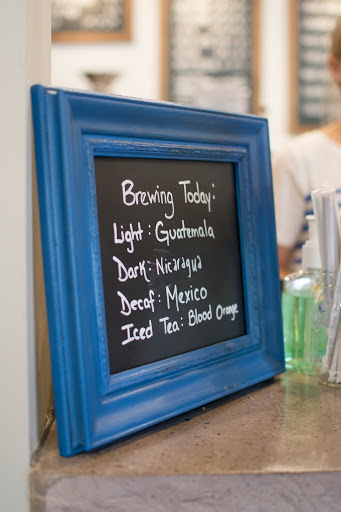 Brewing Today:
Light: Guatemala
Dark: Nicaragua
Decaf: Mexico
Iced Tea: Blood Orange